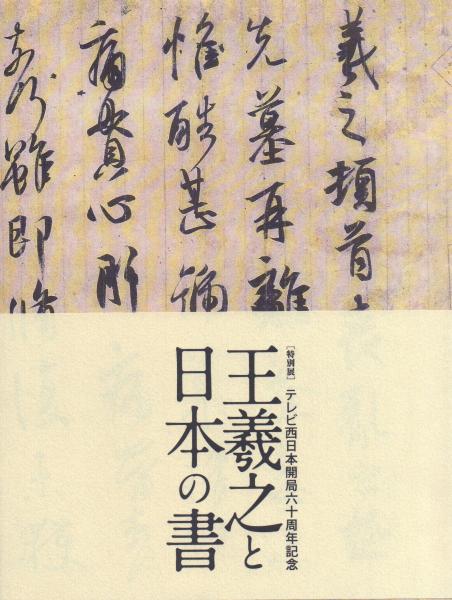 羲之頓首
先墓再離
惟酷甚號
痛貫心肝
奈何雖即
［特別展］テレビ西日本開局六十周年記念
王羲之と
日本の書